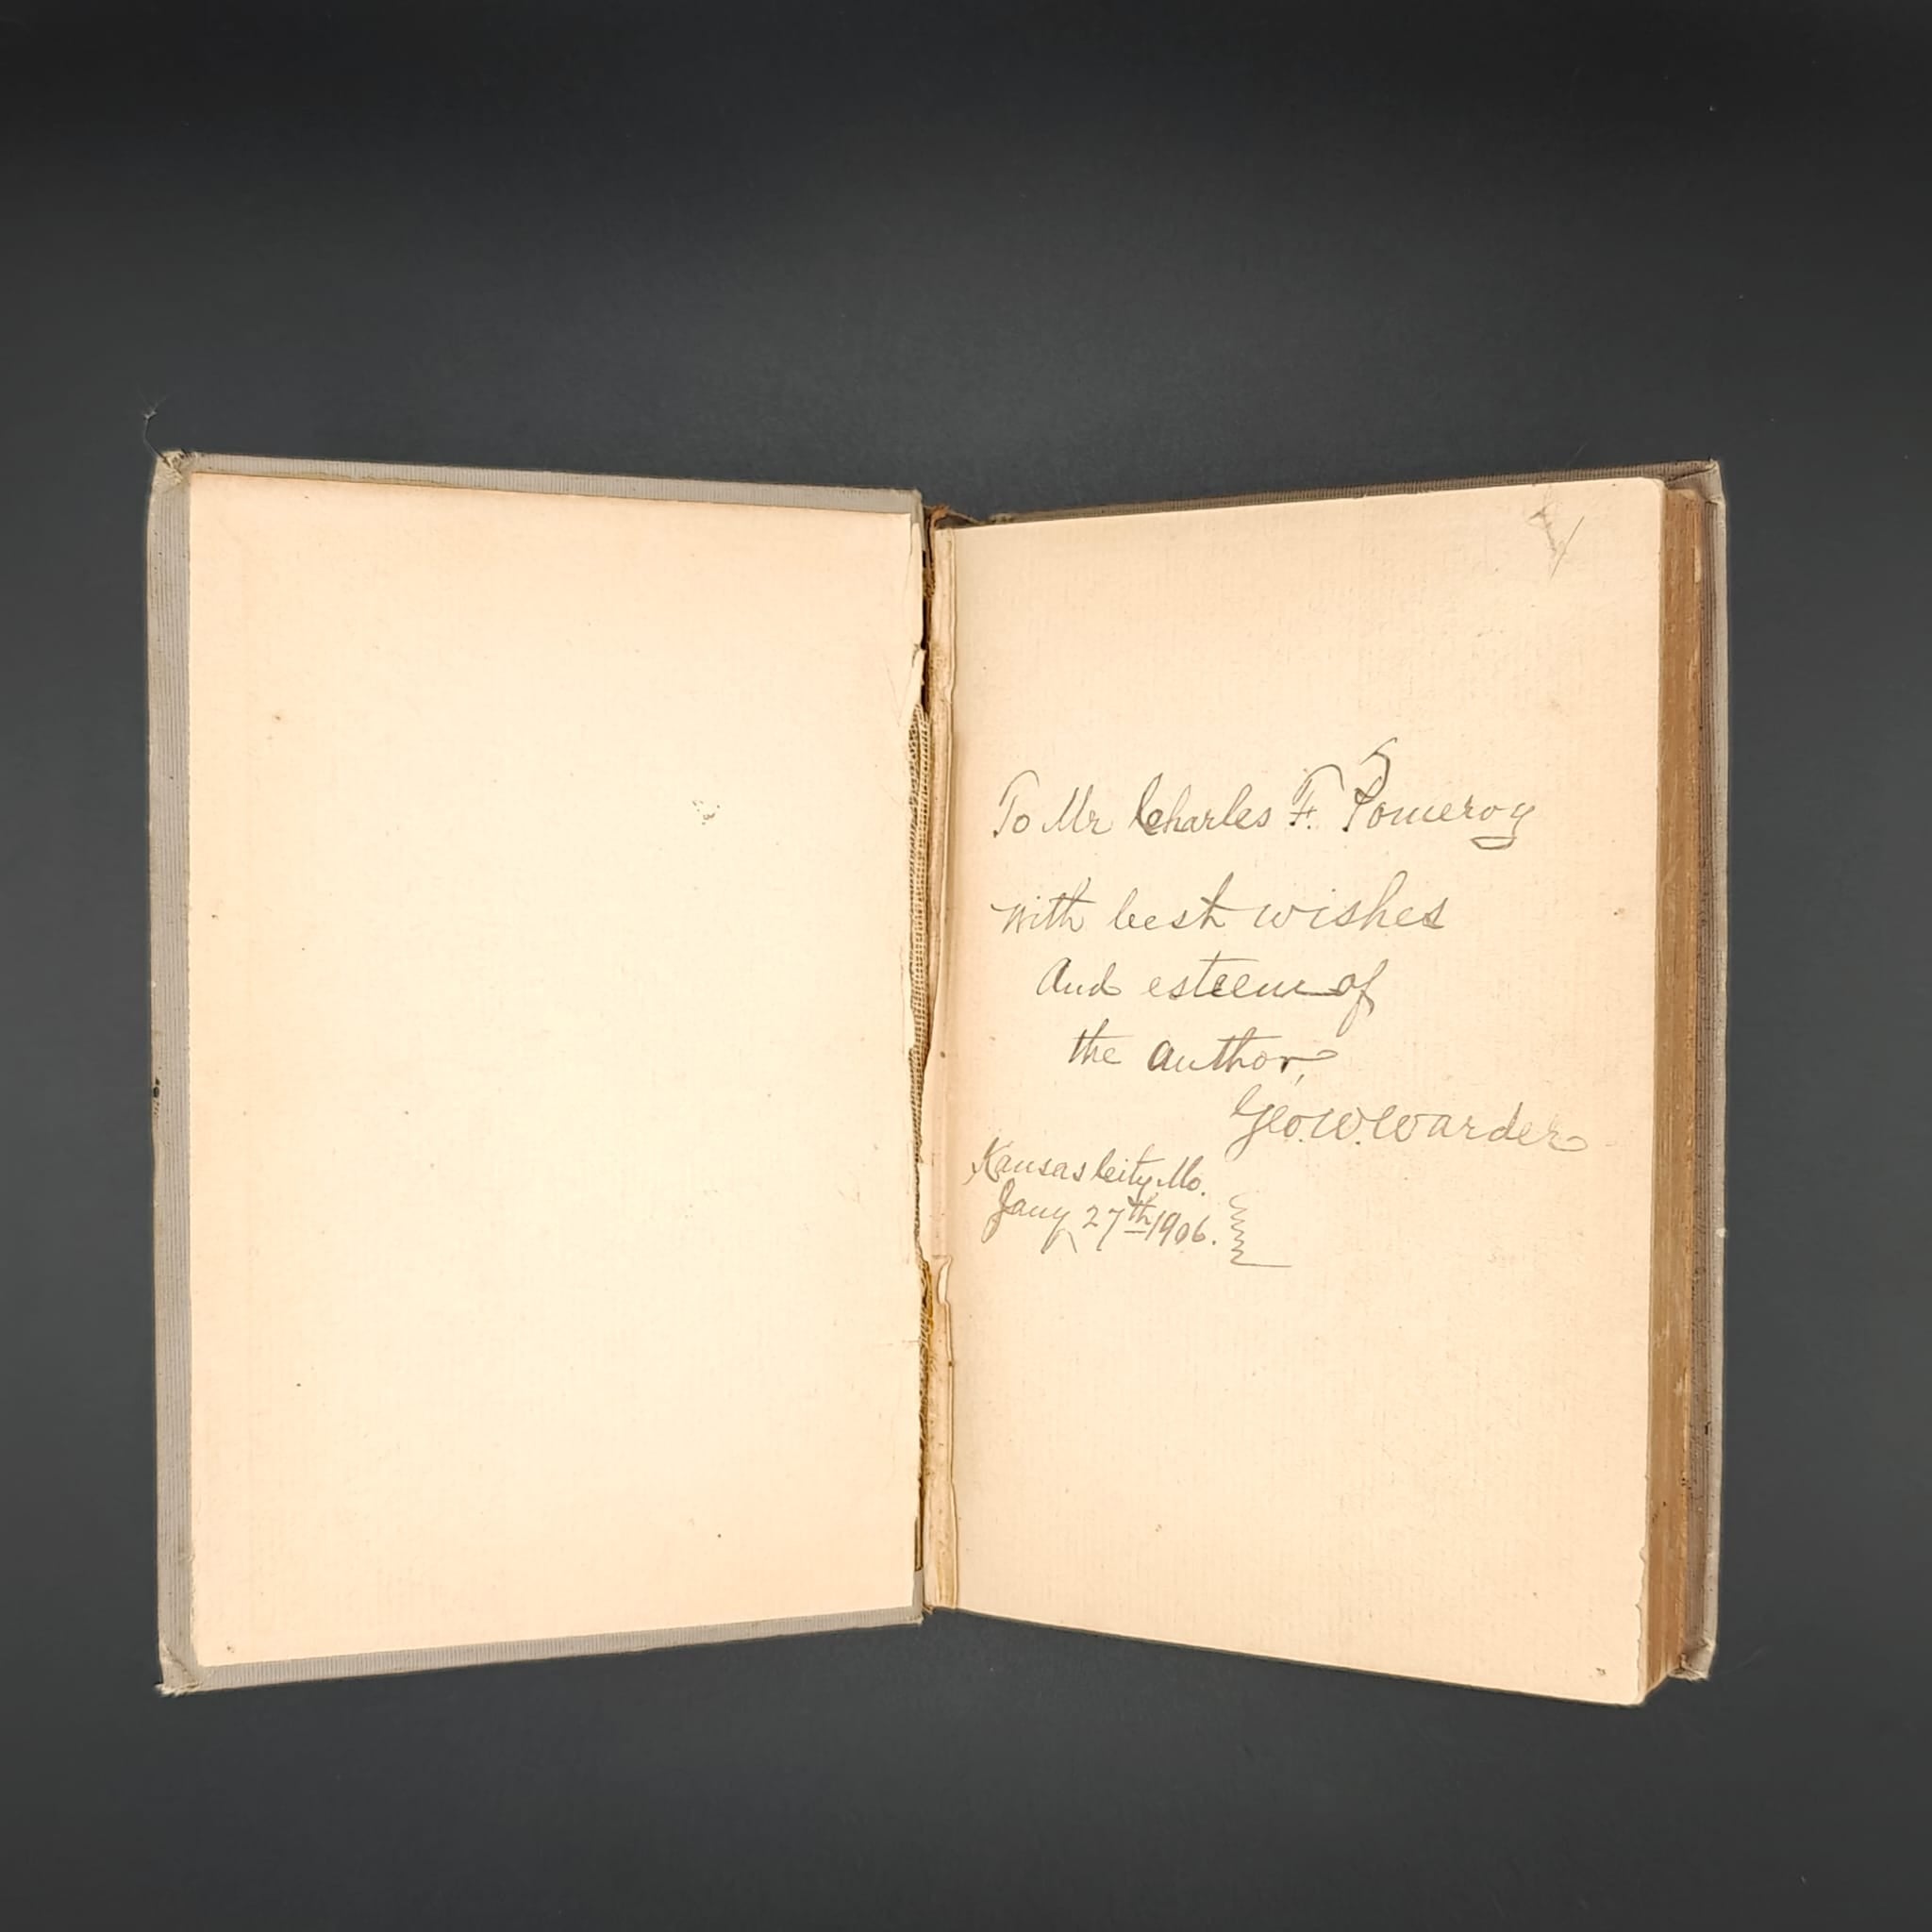 To Mr Charles F. Pomeroy
with best wishes
and esteem of
the author,
Geo. W. Warder
Kansas City, Mo.
Jany 27th 1906.